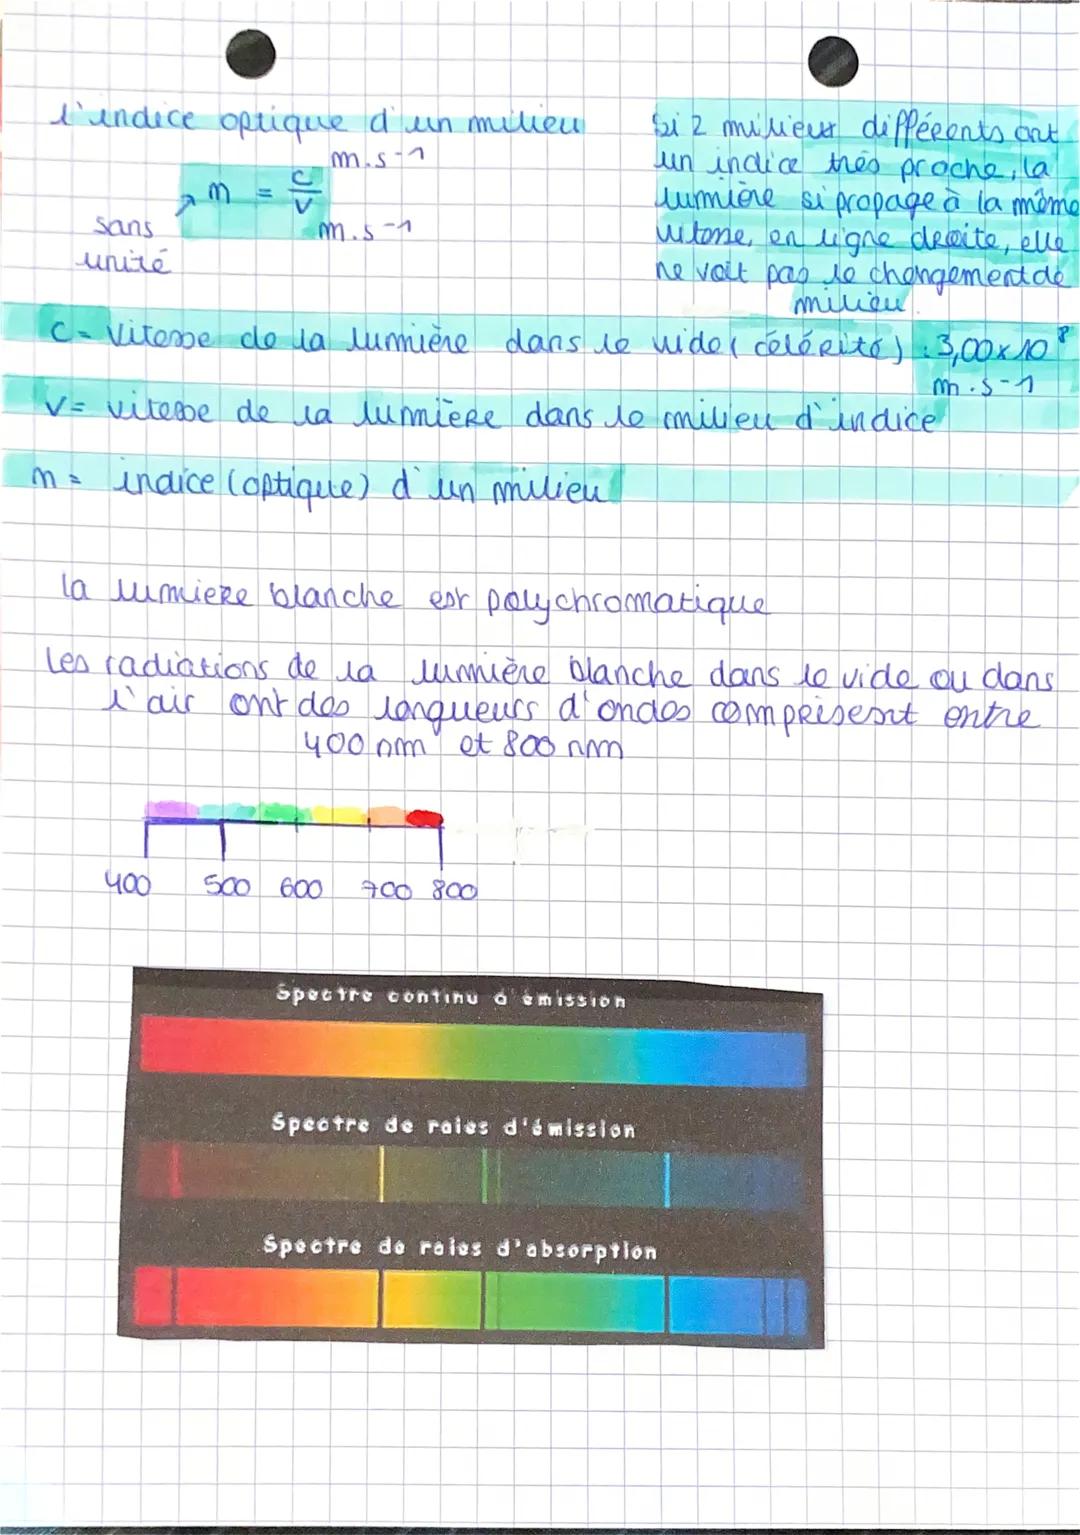 l'indice optique d'un milieu
m.s-1
n = c/v
m.s-1
sans
unité
Si 2 milieux différents ont
un indice très proche, la
lumière si propage à la même
vitesse, en ligne droite, elle
ne voit pas le changement de
milieu.
C = Vitesse de la lumière dans le vide (célérité) : 3,00 x 10⁸
m.s-1
V = vitesse de la lumière dans le milieu d'indice
n = indice (optique) d'un milieu
la lumiere blanche est polychromatique
Les radiations de la lumière blanche dans le vide ou dans
l'air ont des longueurs d'ondes comprisent entre
400 nm et 800 nm
400 500 600 700 800
Spectre continu d'émission
Spectre de raies d'émission
Spectre de raies d'absorption